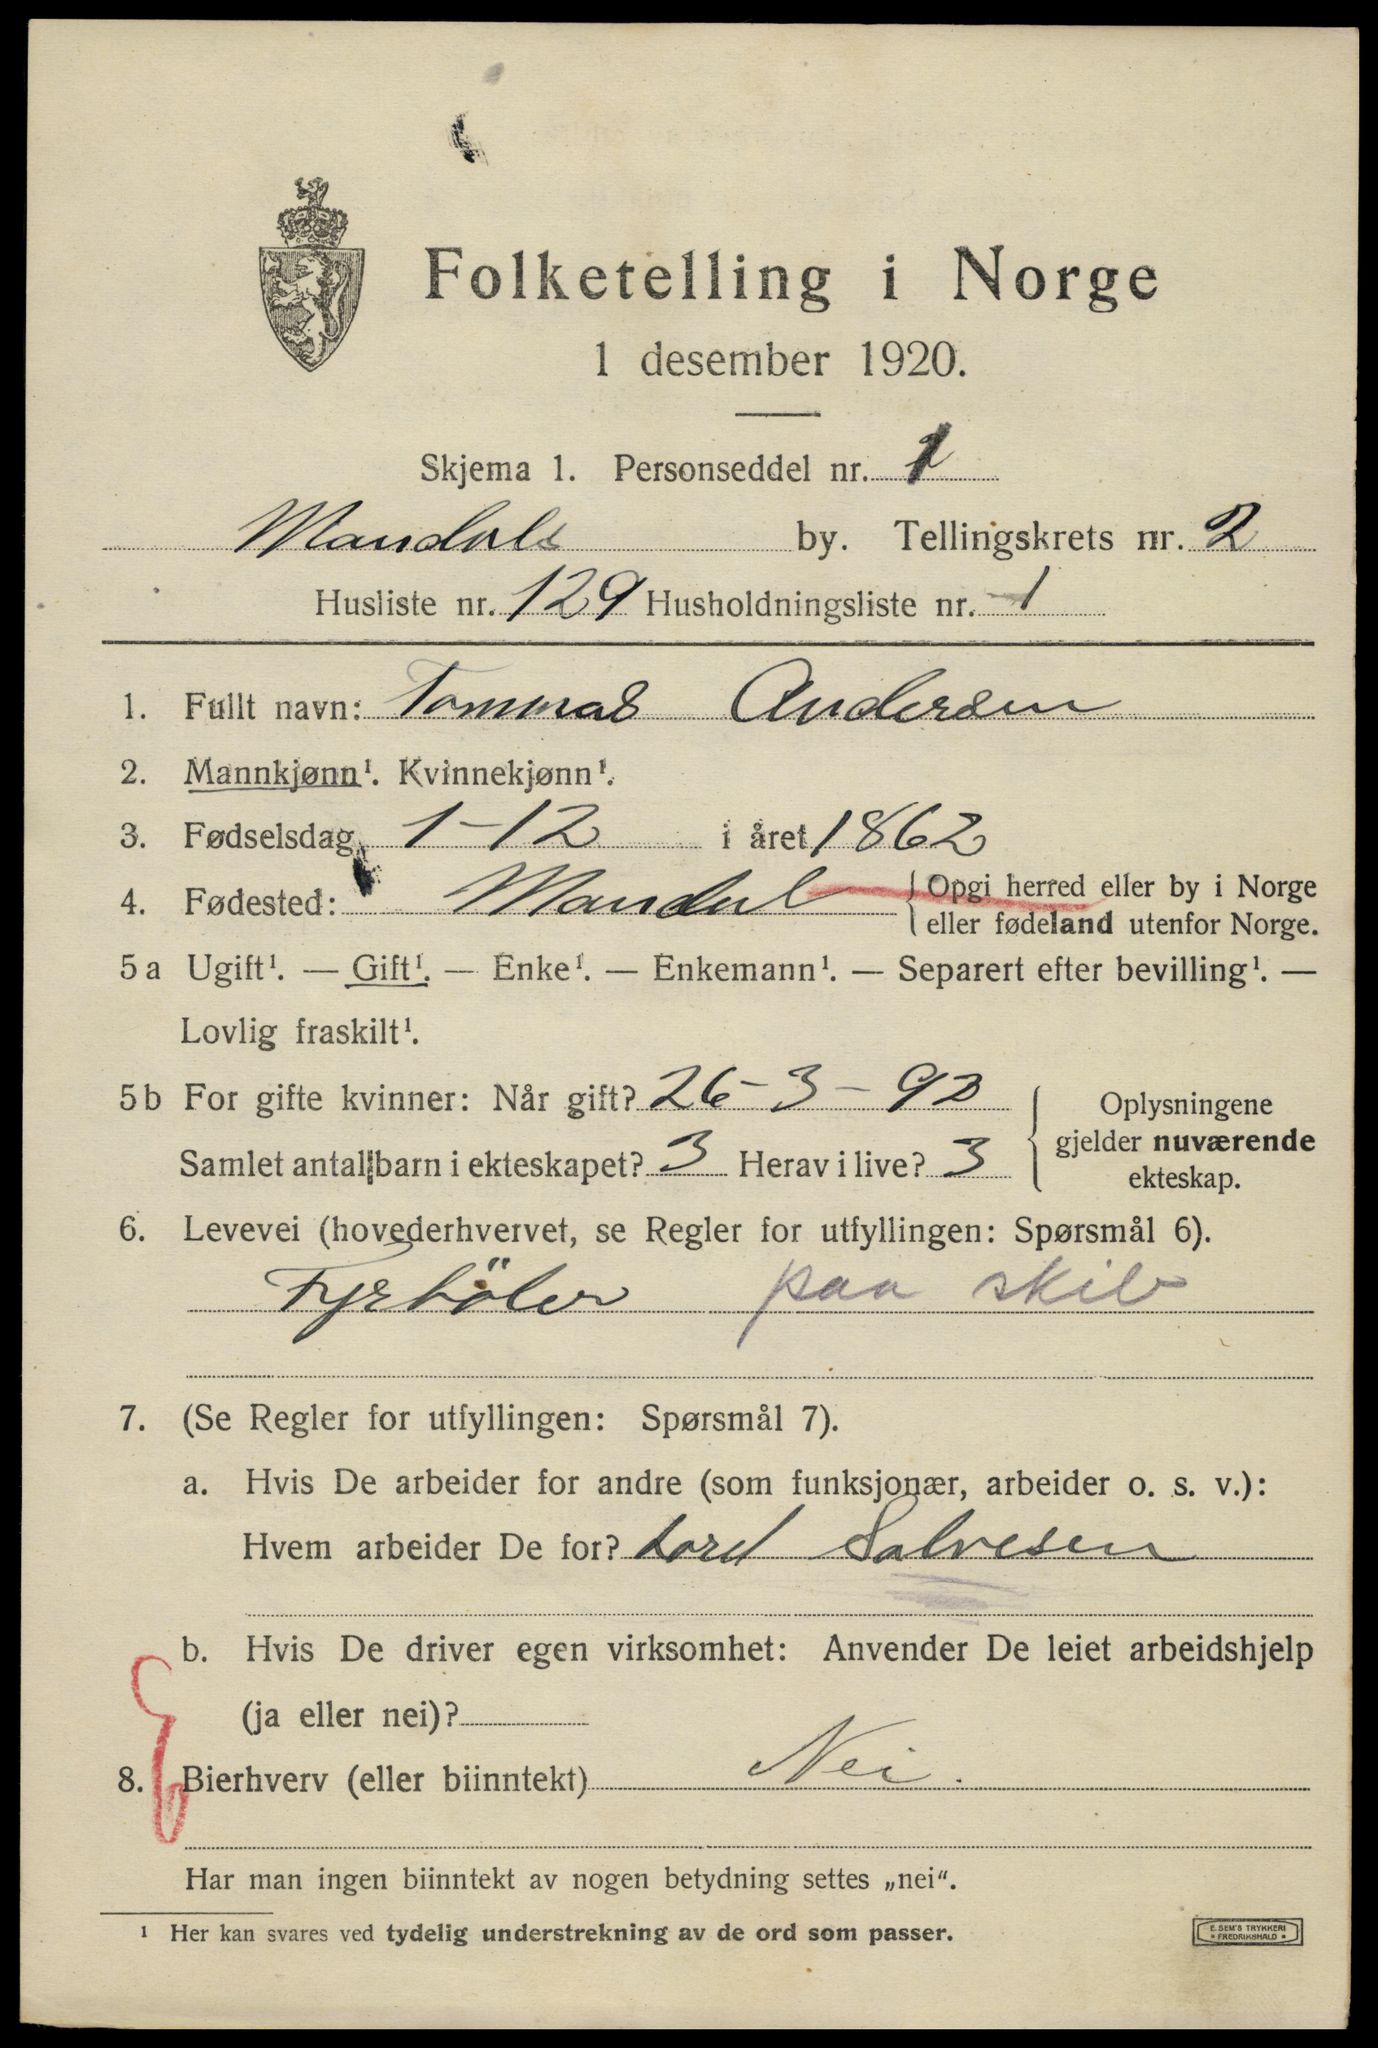 Folketelling i Norge
1 desember 1920.
Skjema 1. Personseddel nr. 1
Mandals by. Tellingskrets nr. 2
Husliste nr. 129 Husholdningsliste nr. 1
1. Fullt navn: Tommas Andersen
2. Mannkjønn¹. Kvinnekjønn¹.
3. Fødselsdag 1-12 i året 1862
4. Fødested: Mandal { Opgi herred eller by i Norge
eller fødeland utenfor Norge.
5 a Ugift¹. — Gift¹. — Enke¹. — Enkemann¹. — Separert efter bevilling¹. —
Lovlig fraskilt¹.
5 b For gifte kvinner: Når gift? 26-3-92
Samlet antal barn i ekteskapet? 3 Herav i live? 3
{ Oplysningene
gjelder nuværende
ekteskap.
6. Levevei (hovederhvervet, se Regler for utfyllingen: Spørsmål 6).
Fyrböter paa skib
7. (Se Regler for utfyllingen: Spørsmål 7).
a. Hvis De arbeider for andre (som funksjonær, arbeider o. s. v.):
Hvem arbeider De for? Lorel Salvesen
b. Hvis De driver egen virksomhet: Anvender De leiet arbeidshjelp
(ja eller nei)?
8. Bierhverv (eller biinntekt) Nei.
Har man ingen biinntekt av nogen betydning settes „nei“.
¹ Her kan svares ved tydelig understrekning av de ord som passer.
E. SEM'S TRYKKERI
* FREDRIKSHALD *